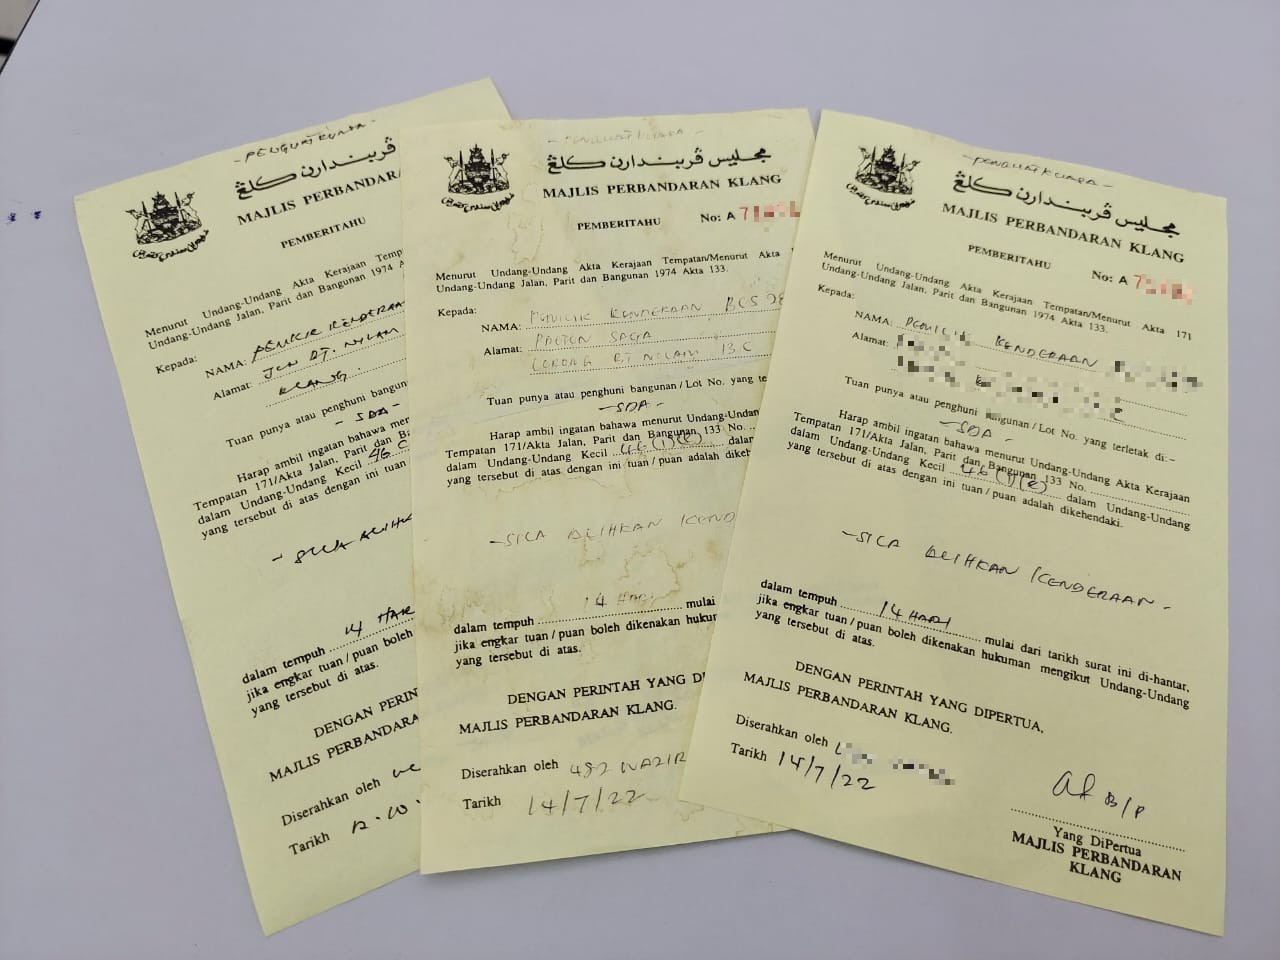 - PENGUATKUASA -
مجليس ڤربندارن كلڠ
MAJLIS PERBANDARA
PEMBERITAHU
Menurut Undang-Undang Akta Kerajaan Temp
Undang-Undang Jalan, Parit dan Bangunan 1974 A
Kepada:
NAMA: PEMILIK KENDERAAN
Alamat: JLN RT. NILAM
KLANG.
Tuan punya atau penghuni bangun
- SDA -
Harap ambil ingatan bahawa men
Tempatan 171/Akta Jalan, Parit dan B
dalam Undang-Undang Kecil 46 C
yang tersebut di atas dengan ini tuan
- SILA ALIHK
dalam tempuh 14 HAR
jika engkar tuan / puan boleh
yang tersebut di atas.
DENGAN PERIN
MAJLIS PERBANDARA
Diserahkan oleh
Tarikh
- PENGUATKUASA -
مجليس ڤربندارن كلڠ
MAJLIS PERBANDARAN KLANG
PEMBERITAHU
No: A 7
Menurut Undang-Undang Akta Kerajaan Tempatan/Menurut Akta
Undang-Undang Jalan, Parit dan Bangunan 1974 Akta 133.
Kepada:
NAMA: PEMILIK KENDERAAN BCS
Alamat: PROTON SAGA
LORONG RT NILAM 13 C
Tuan punya atau penghuni bangunan / Lot No. yang te
- SDA -
Harap ambil ingatan bahawa menurut Undang-Undang
Tempatan 171/Akta Jalan, Parit dan Bangunan 133 No.
dalam Undang-Undang Kecil 46 (1)(e) dalam
yang tersebut di atas dengan ini tuan / puan adalah dikeh
- SILA ALIHKAN KEND
dalam tempuh 14 HARI mulai
jika engkar tuan / puan boleh dikenakan hukum
yang tersebut di atas.
DENGAN PERINTAH YANG DI
MAJLIS PERBANDARAN KLANG.
Diserahkan oleh 482 WAZIR
Tarikh 14/7/22
- PENGUATKUASA -
مجليس ڤربندارن كلڠ
MAJLIS PERBANDARAN KLANG
PEMBERITAHU
No: A 7
Menurut Undang-Undang Akta Kerajaan Tempatan/Menurut Akta 171
Undang-Undang Jalan, Parit dan Bangunan 1974 Akta 133.
Kepada:
NAMA: PEMILIK KENDERAAN
Alamat:
Tuan punya atau penghuni bangunan / Lot No. yang terletak di:-
- SDA -
Harap ambil ingatan bahawa menurut Undang-Undang Akta Kerajaan
Tempatan 171/Akta Jalan, Parit dan Bangunan 133 No.
dalam Undang-Undang Kecil 46 (1)(e) dalam Undang-Undang
yang tersebut di atas dengan ini tuan / puan adalah dikehendaki.
- SILA ALIHKAN KENDERAAN -
dalam tempuh 14 HARI mulai dari tarikh surat ini di-hantar,
jika engkar tuan / puan boleh dikenakan hukuman mengikut Undang-Undang
yang tersebut di atas.
DENGAN PERINTAH YANG DIPERTUA,
MAJLIS PERBANDARAN KLANG.
Diserahkan oleh
Tarikh 14/7/22
B/P
Yang DiPertua
MAJLIS PERBANDARAN
KLANG